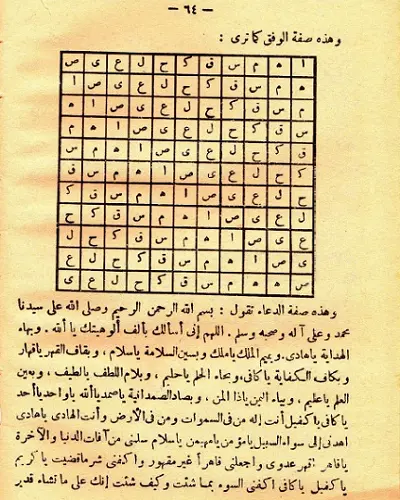 — ٦٤ —
وهذه صفة الوفق كما ترى :
ا ه م س ق ك ح ل ع ى ص
ه م س ق ك ح ل ع ى ص ا
م س ق ك ح ل ع ى ص ا ه
س ق ك ح ل ع ى ص ا ه م
ق ك ح ل ع ى ص ا ه م س
ك ح ل ع ى ص ا ه م س ق
ح ل ع ى ص ا ه م س ق ك
ل ع ى ص ا ه م س ق ك ح
ع ى ص ا ه م س ق ك ح ل
ى ص ا ه م س ق ك ح ل ع
ص ا ه م س ق ك ح ل ع ى
وهذه صفة الدعاء تقول : بسم الله الرحمن الرحيم وصلى الله على سيدنا
محمد وعلى آله وصحبه وسلم . اللهم إنى أسألك بألف ألوهيتك يا ألله . وبهاء
الهداية ياهادى وبميم الملك ياملك وبسين السلامة ياسلام ، وبقاف القهر ياقهار
وبكاف الكفاية ياكافى ، وبحاء الحلم ياحليم ، وبلام اللطف يالطيف ، وبعين
العلم ياعليم ، وبياء اليمن ياذا المن ، وبصاد الصمدانية ياصمد ياألله ياواحد ياأحد
ياكافى ياكفيل أنت إله من فى السموات ومن فى الأرض وأنت الهادى ياهادى
اهدنى إلى سواء السبيل يامؤمن يامهيمن ياسلام سلمنى من آفات الدنيا والآخرة
ياقاهر اقهر عدوى واجعلنى قاهرا غير مقهور واكفنى شر ماقضيت ياكريم
ياكفيل ياكافى اكفنى السوء بما شئت وكيف شئت إنك على ما تشاء قدير